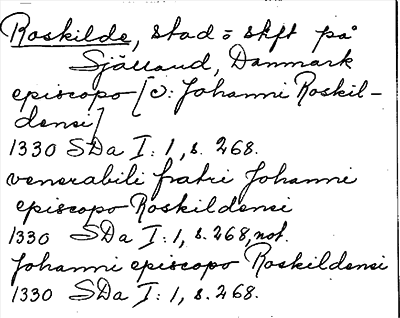 Roskilde, stad o skft på
Själland, Danmark
episcopo [ɔ: Johanni Roskil-
densi]
1330 SDa I: 1, s. 268.
venerabili fratri Johanni
episcopo Roskildensi
1330 SDa I: 1, s. 268, not.
Johanni episcopo Roskildensi
1330 SDa I: 1, s. 268.